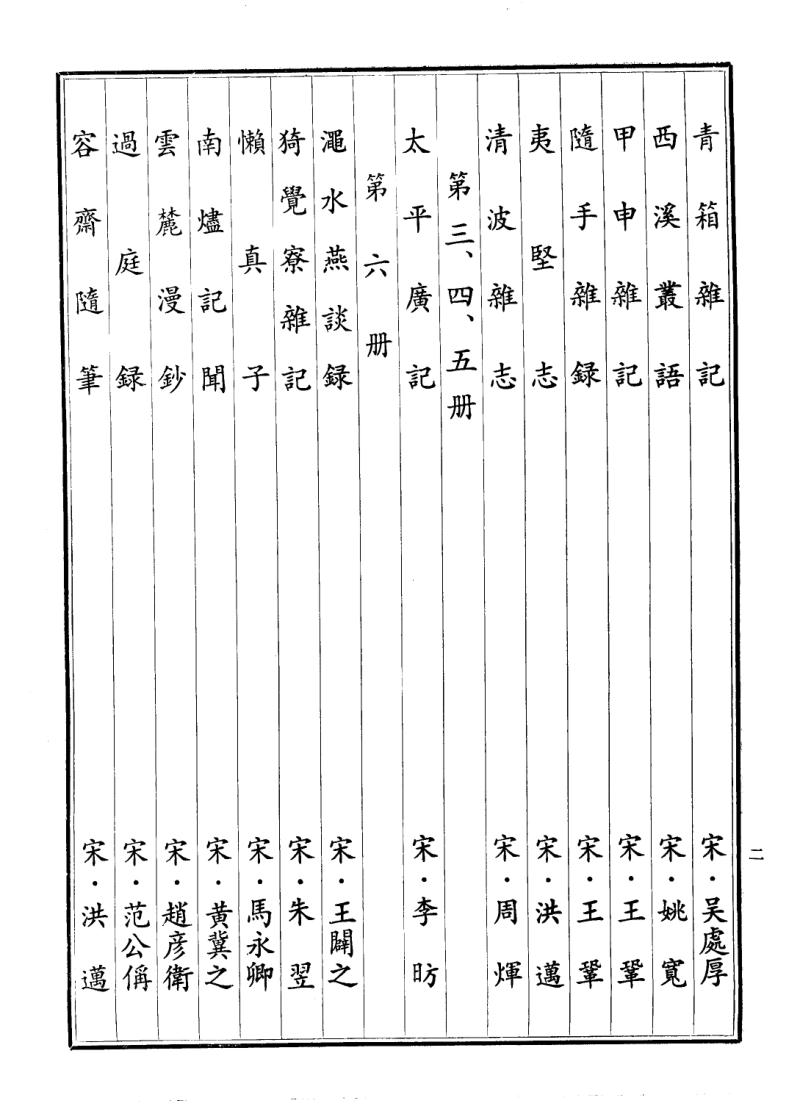 青箱雜記 宋·吴處厚
西溪叢語 宋·姚寬
甲申雜記 宋·王鞏
隨手雜録 宋·王鞏
夷堅志 宋·洪邁
清波雜志 宋·周煇
第三、四、五册
太平廣記 宋·李昉
第六册
澠水燕談録 宋·王闢之
猗覺寮雜記 宋·朱翌
懶真子 宋·馬永卿
南燼記聞 宋·黄冀之
雲麓漫鈔 宋·趙彦衛
過庭録 宋·范公偁
容齋隨筆 宋·洪邁
二